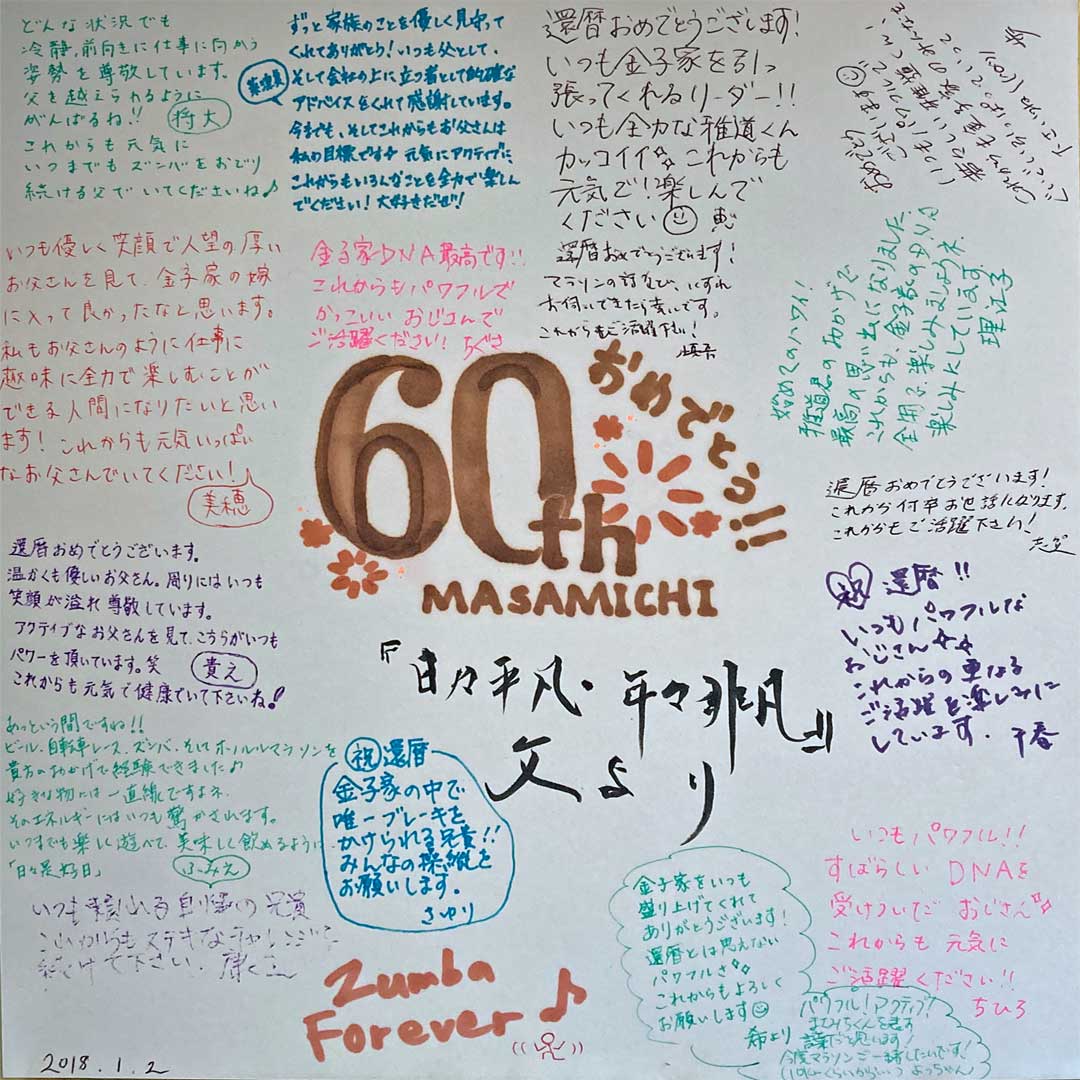 どんな状況でも
冷静、前向きに仕事に向かう
姿勢を尊敬しています。
父を越えられるように
がんばるね!! 将大
これからも元気に
いつまでもズンバをおどり
続ける父でいてくださいね♪
ずっと家族のことを優しく見守って
くれてありがとう!いつも父として、
そして会社の上に立つ者として的確な
アドバイスをくれて感謝しています。
今までも、そしてこれからもお父さんは
私の目標です✧ 元気にアクティブに、
これからもいろんなことを全力で楽しん
でください!大好きだぜ!
還暦おめでとうございます!
いつも金子家を引っ
張ってくれるリーダー!!
いつも全力な雅道くん
カッコイイ✧ これからも
元気で!楽しんで
ください☺ 恵
いつも優しく笑顔で人望の厚い
お父さんを見て、金子家の嫁
に入って良かったなと思います。
私もお父さんのように仕事に
趣味に全力で楽しむことが
できる人間になりたいと思い
ます!これからも元気いっぱい
なお父さんでいてください!
美穂
金子家DNA最高です!!
これからもパワフルで
かっこいい おじさんで
ご活躍ください! ちぐさ
還暦おめでとうございます!
マラソンの話など、いずれ
お伺いできたら幸いです。
これからもご活躍下さい!
始めてのハワイ!
雅道君のおかげで
最高の思い出になりました。
これからも、金子家のDNA
全開で楽しみましょうネ。
楽しみにしています。
理江子
60th
おめでとう!!
MASAMICHI
還暦おめでとうございます!
これから何卒お世話になります。
これからもご活躍下さい!
還暦おめでとうございます。
温かくも優しいお父さん。周りにはいつも
笑顔が溢れ尊敬しています。
アクティブなお父さんを見て、こちらがいつも
パワーを頂いています。笑 貴え
これからも元気で健康でいて下さいね!
祝 還暦!!
いつもパワフルな
おじさん✧✧
これからの更なる
ご活躍を楽しみに
しています。 千春
『日々平凡・年々非凡』
父より
あっという間ですね!!
ビール、自転車レース、ズンバ、そしてホノルルマラソンを
貴方のおかげで経験できました♪
好きな物には一直線ですネ
そのエネルギーにはいつも驚かされます。
いつまでも楽しく遊べて、美味しく飲めるように
「日々是好日」 ふみえ
祝 還暦
金子家の中で
唯一ブレーキを
かけられる兄貴!!
みんなの操縦を
お願いします。
さゆり
いつも頼れる自慢の兄貴
これからもステキなチャレンジを
続けて下さい。
金子家をいつも
盛り上げてくれて
ありがとうございます!
還暦とは思えない
パワフルさ✧
これからもよろしく
お願いします☺
希より
いつもパワフル!!
すばらしい DNAを
受けついだ おじさん✧
これからも 元気に
ご活躍ください!!
ちひろ
パワフル!アクティブ!
Zumba
Forever♪
2018.1.2